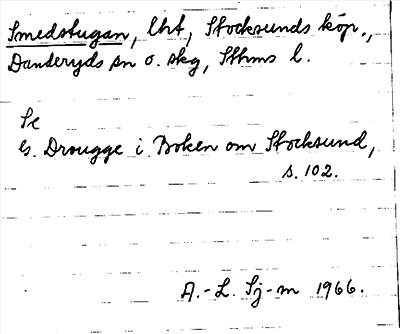 Smedstugan, lht, Stocksunds köp.,
Danderyds sn o. skg, Sthms l.
Se
G. Drougge i Boken om Stocksund,
s. 102.
A.-L. Sj-m 1966.